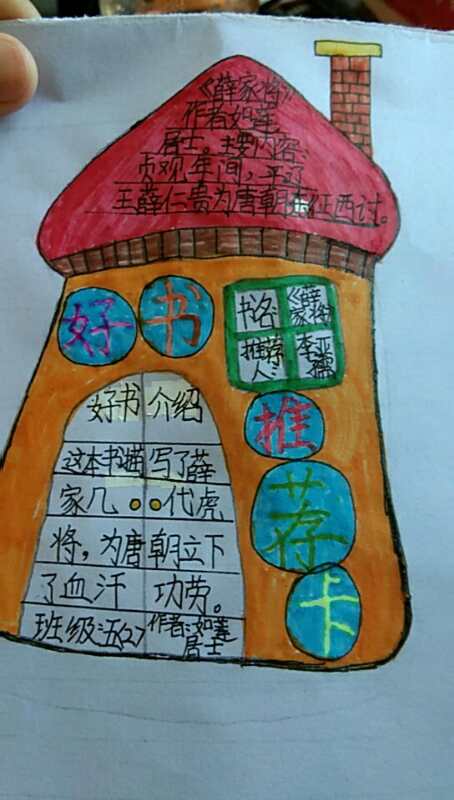 《薛家将》
作者如莲
居士。主要内容:
贞观年间，平辽
王薛仁贵为唐朝东征西讨。
好书
书名:《薛家将》
推荐人:李亚儒
推
荐
卡
好书介绍
这本书描写了薛
家几代虎
将，为唐朝立下
了血汗功劳。
班级:五(2) 作者:如莲居士